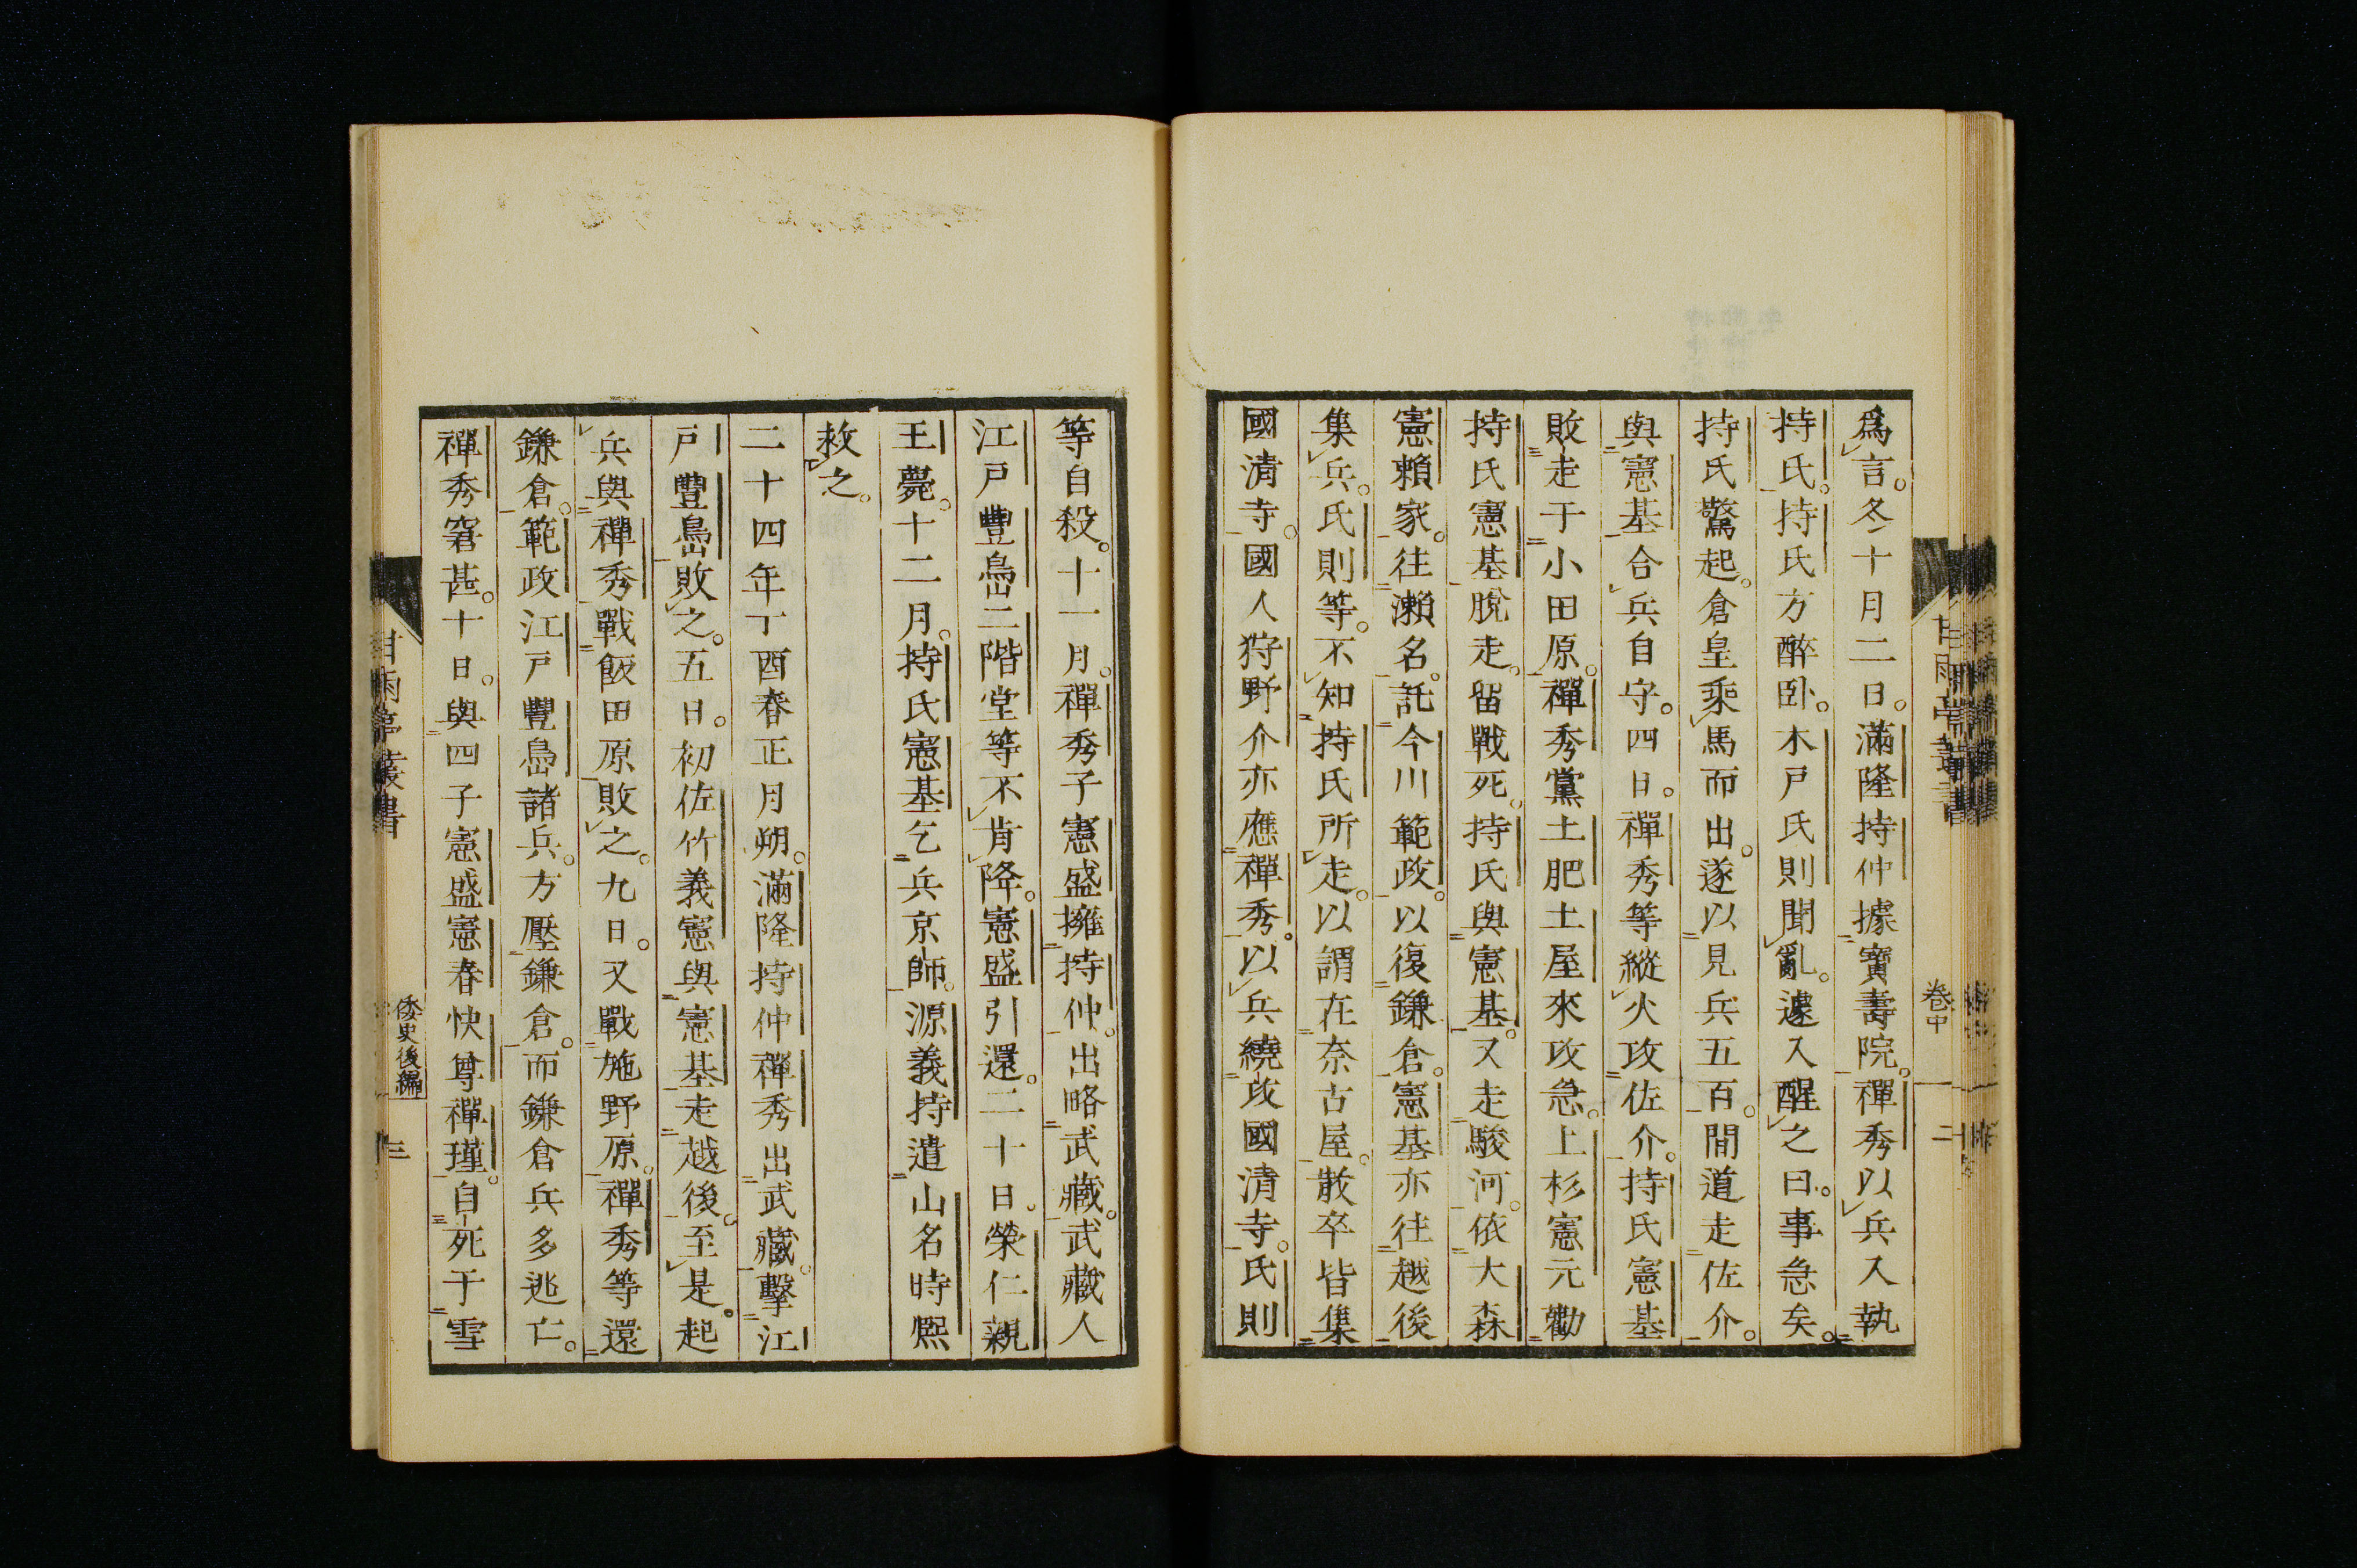 爲言。冬十月二日。滿隆持仲據寶壽院。禪秀以兵入執
持氏。持氏方醉臥。木戶氏則聞亂。遽入醒之曰。事急矣。
持氏驚起。倉皇乘馬而出。遂以見兵五百。間道走佐介。
與憲基合兵自守。四日。禪秀等縱火攻佐介。持氏憲基
敗走于小田原。禪秀黨土肥土屋來攻急。上杉憲元勸
持氏憲基脫走。留戰死。持氏與憲基。又走駿河。依大森
憲賴家。往瀨名。託今川範政。以復鎌倉。憲基亦往越後
集兵。氏則等。不知持氏所走。以謂在奈古屋。散卒皆集
國清寺。國人狩野介亦應禪秀。以兵繞攻國清寺。氏則
甘雨亭叢書
卷中
二
等自殺。十一月。禪秀子憲盛擁持仲。出略武藏。武藏人
江戶豐島二階堂等不肯降。憲盛引還。二十日。榮仁親
王薨。十二月。持氏憲基乞兵京師。源義持遣山名時熙
救之。
二十四年丁酉春正月朔。滿隆持仲禪秀出武藏。擊江
戶豐島敗之。五日。初佐竹義憲與憲基走越後。至是。起
兵與禪秀戰飯田原敗之。九日。又戰施野原。禪秀等還
鎌倉。範政江戶豐島諸兵。方壓鎌倉。而鎌倉兵多逃亡。
禪秀窘甚。十日。與四子憲盛憲春快尊禪瑾。自死于雪
甘雨亭叢書
倭史後編
三